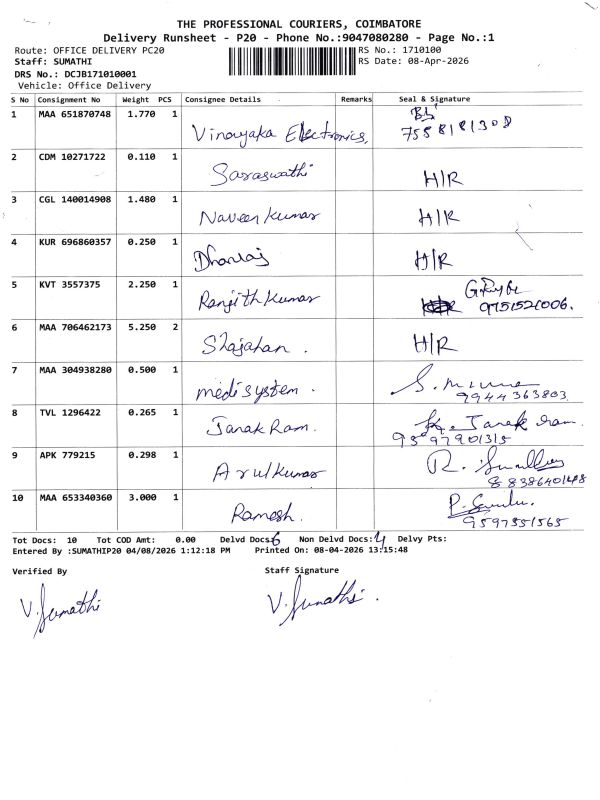 THE PROFESSIONAL COURIERS, COIMBATORE
Delivery Runsheet - P20 - Phone No.:9047080280 - Page No.:1
Route: OFFICE DELIVERY PC20 RS No.: 1710100
Staff: SUMATHI RS Date: 08-Apr-2026
DRS No.: DCJB171010001
Vehicle: Office Delivery
S No Consignment No Weight PCS Consignee Details Remarks Seal & Signature
1 MAA 651870748 1.770 1 Vinayaka Electronics,
2 CDM 10271722 0.110 1 Saraswathi H/R
3 CGL 140014908 1.480 1 Naveen Kumar H/R
4 KUR 696860357 0.250 1 Dhanraj H/R
5 KVT 3557375 2.250 1 Ranjith Kumar 9751521006.
6 MAA 706462173 5.250 2 Shajahan . H/R
7 MAA 304938280 0.500 1 medisystem . 9944363803
8 TVL 1296422 0.265 1 Janak Ram. K. Janak Ram. 9597901315
9 APK 779215 0.298 1 Arulkumar R.
10 MAA 653340360 3.000 1 Ramesh. 9597551565
Tot Docs: 10 Tot COD Amt: 0.00 Delvd Docs:6 Non Delvd Docs:4 Delvy Pts:
Entered By :SUMATHIP20 04/08/2026 1:12:18 PM Printed On: 08-04-2026 13:15:48
Verified By Staff Signature
V. Sumathi V. Sumathi.